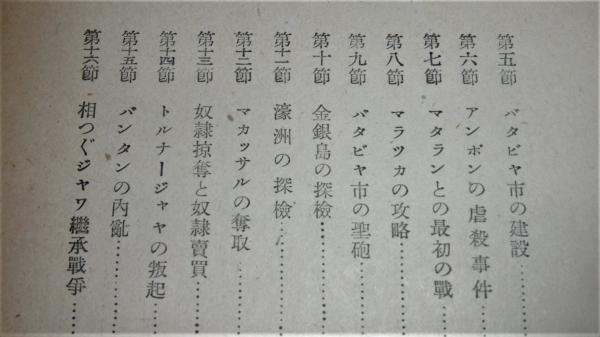 第五節 バタビヤ市の建設………
第六節 アンボンの虐殺事件………
第七節 マタランとの最初の戰………
第八節 マラツカの攻略………
第九節 バタビヤ市の聖砲………
第十節 金銀島の探檢………
第十一節 濠洲の探檢………
第十二節 マカッサルの奪取………
第十三節 奴隷掠奪と奴隷賣買………
第十四節 トルナージャヤの叛起………
第十五節 バンタンの內亂………
第十六節 相つぐジャワ繼承戰爭………